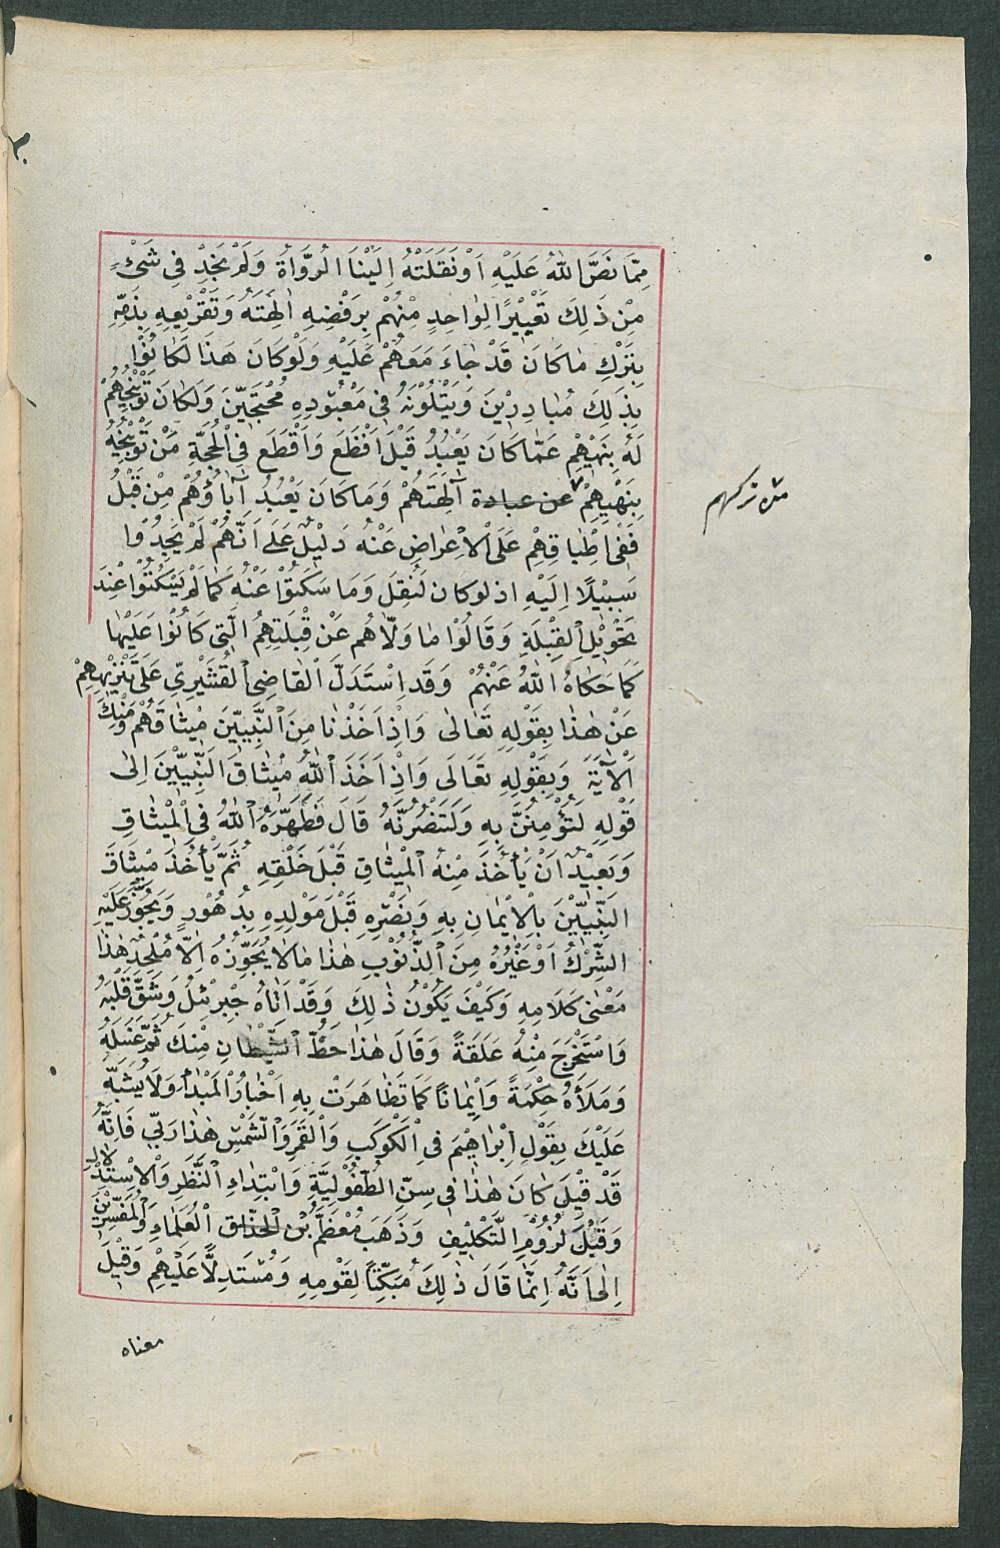 مِمَّا نَصَّ اللهُ عَلَيْهِ اَوْنَقَلَتْهُ اِلَيْنَا الرُّوَاةُ وَلَمْ نَجِدْ فِى شَىْءٍ
مِنْ ذَلِكَ تَعْيِيْرًا لِوَاحِدٍ مِنْهُمْ بِرَفْضِهِ اٰلِهَتَهُ وَتَقْرِيْعِهِ بِذَمِّهِ
بِتَرْكِ مَاكَانَ قَدْ جَاءَ مَعَهُمْ عَلَيْهِ وَلَوْكَانَ هَذَا لَكَانُوْا
بِذَلِكَ مُبَادِرِيْنَ وَبِتَلَوُّنِهِ فِى مَعْبُوْدِهِ مُحْتَجِّيْنَ وَلَكَانَ تَوْبِيْخُهُمْ
لَهُ بِنَهْيِهِمْ عَمَّا كَانَ يَعْبُدُ قَبْلُ اَفْظَعَ وَاَقْطَعَ فِى الْحُجَّةِ مَنْ تَوْبِيْخِهِ
بِنَهْيِهِمْ عن عبادة آلِهَتَهُمْ وَمَاكَانَ يَعْبُدُ آبَاؤُهُمْ مِنْ قَبْلُ
فَفِى اِطْبَاقِهِمْ عَلَى الْاِعْرَاضِ عَنْهُ دَلِيْلٌ عَلَى اَنَّهُمْ لَمْ يَجِدُوْا
سَبِيْلًا اِلَيْهِ اذ لوكان لَنُقِلَ وَمَا سَكَتُوْا عَنْهُ كَمَا لَمْ يَسْكُتُوْا عِنْدَ
تَحْوِيْلِ الْقِبْلَةِ وَقَالُوْا مَا وَلَّاهُم عَنْ قِبْلَتِهِمُ الَّتِى كَانُوْا عَلَيْهَا
كَمَا حَكَاهُ اللهُ عَنْهُمْ وَقَدِ اسْتَدَلَّ الْقَاضِى الْقُشَيْرِىّ عَلَى تَنْزِيْهِهِمْ
عَنْ هٰذَا بِقَوْلِهِ تَعَالٰى وَاِذْ اَخَذْنَا مِنَ النَّبِيّيْنَ مِيْثَاقَهُمْ وَمِنْكَ
اَلْاٰيَةَ وَبِقَوْلِهِ تَعَالَى وَاِذْ اَخَذَ اللهُ مِيْثَاقَ النَّبِيّيْنَ اِلٰى
قَوْلِهِ لَتُؤْمِنُنَّ بِهِ وَلَتَنْصُرُنَّهُ قَالَ فَطَهَّرَهُ اللهُ فِى الْمِيْثَاقِ
وَبَعِيْدٌ اَنْ يَأْخُذَ مِنْهُ الْمِيْثَاقِ قَبْلَ خَلْقِهِ ثُمَّ يَأْخُذَ مِيْثَاقَ
النَّبِيّيْنَ بِالْاِيْمَانِ بِهِ وَنَصْرِهِ قَبْلَ مَوْلِدِهِ بِدُهُوْرٍ وَيَجُوْزَ عَلَيْهِ
الشِّرْكُ اَوْ غَيْرُهُ مِنَ الذُّنُوْبِ هٰذَا مَالَا يُجَوِّزُهُ اِلَّا مُلْحِدٌ هٰذَا
مَعْنٰى كَلَامِهِ وَكَيْفَ يَكُوْنُ ذٰلِكَ وَقَدْ اَتَاهُ جِبْرِئلُ وَشَقَّ قَلْبَهُ
وَاسْتَخْرَجَ مِنْهُ عَلَقَةً وَقَالَ هٰذَا حَظُّ الشَّيْطَانِ مِنْكَ ثُمَّ غَسَلَهُ
وَمَلَأَهُ حِكْمَةً وَاِيْمَانًا كَمَا تَظَاهَرَتْ بِهِ اَخْبَارُ الْمَبْدَأِ وَلَا يُشَبَّهُ
عَلَيْكَ بِقَوْلِ اِبْرَاهِيْمَ فِى الْكَوْكَبِ وَالْقَمَرِ وَالشَّمْسِ هٰذَا رَبِّى فَاِنَّهُ
قَدْ قِيْلَ كَانَ هٰذَا فِى سِنِّ الطُّفُوْلِيَّةِ وَابْتِدَاءِ النَّظَرِ وَالْاِسْتِدْلَالِ
وَقَبْلَ لُزُوْمِ التَّكْلِيْفِ وَذَهَبَ مُعْظَمُ بُن الْحُذَّاق الْعُلَمَاءِ وَالْمُفَسِّرِيْنَ
اِلٰى اَنَّهُ اِنَّمَا قَالَ ذٰلِكَ مُبَكِّتًا لِقَوْمِهِ وَمُسْتَدِلًّا عَلَيْهِمْ وَقِيْلَ
معناه
تركهم